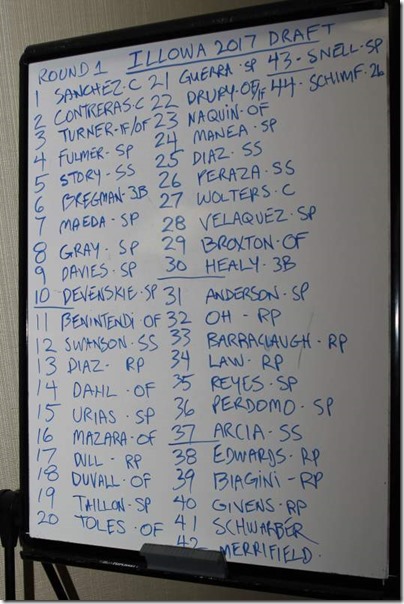 ROUND 1 ILLOWA 2017 DRAFT
1 SANCHEZ·C
2 CONTRERAS·C
3 TURNER·IF/OF
4 FULMER·SP
5 STORY·SS
6 BREGMAN·3B
7 MAEDA·SP
8 GRAY·SP
9 DAVIES·SP
10 DEVENSKIE·SP
11 BENINTENDI·OF
12 SWANSON·SS
13 DIAZ·RP
14 DAHL·OF
15 URIAS·SP
16 MAZARA·OF
17 DULL·RP
18 DUVALL·OF
19 TAILLON·SP
20 TOLES·OF
21 GUERRA·SP
22 DRURY·OF/IF
23 NAQUIN·OF
24 MANEA·SP
25 DIAZ·SS
26 PERAZA·SS
27 WOLTERS·C
28 VELAQUEZ·SP
29 BROXTON·OF
30 HEALY·3B
31 ANDERSON·SP
32 OH·RP
33 BARRACLAUGH·RP
34 LAW·RP
35 REYES·SP
36 PERDOMO·SP
37 ARCIA·SS
38 EDWARDS·RP
39 BIAGINI-RP
40 GIVENS·RP
41 SCHWARBER
42 MERRIFIELD·
43-SNELL·SP
44-SCHIMF·2b